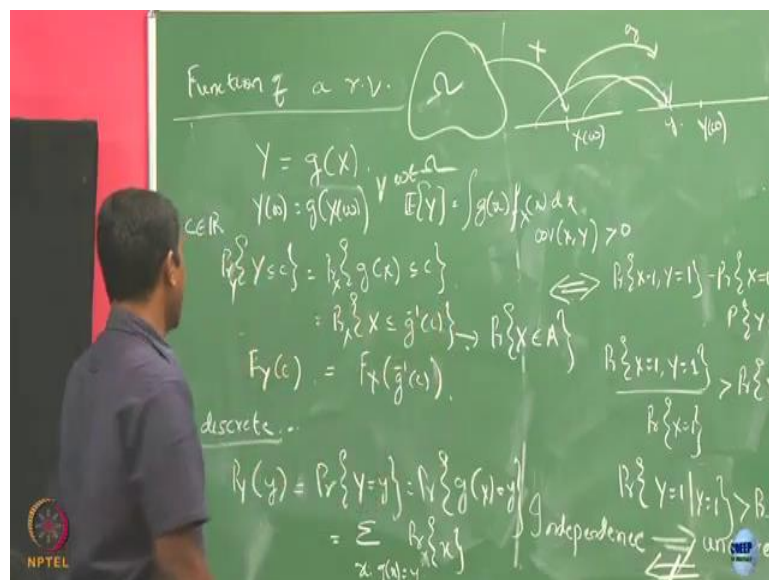 Function of a r.v.
Ω
X
g
X(ω)
y
Y(ω)
Y = g(X).
Y(ω) = g(X(ω)) ∀ ω∈Ω
E[Y] = ∫ g(x) f_X(x) dx
C∈ℝ
Pr_Y{Y ≤ c} = Pr_X{g(X) ≤ c}
= Pr_X{X ≤ g⁻¹(c)} → Pr{X ∈ A}
F_Y(c) = F_X(g⁻¹(c))
discrete...
P_Y(y) = Pr{Y=y} = Pr{g(X)=y}
= Σ Pr{x}
x: g(x)=y
cov(X, Y) > 0
⟺ Pr{X=1, Y=1} - Pr{X=
P{Y=
Pr{X=1, Y=1} > Pr{Y
Pr{X=1}
Pr{Y=1|
Independence ⇒ un
NPTEL
CDEEP